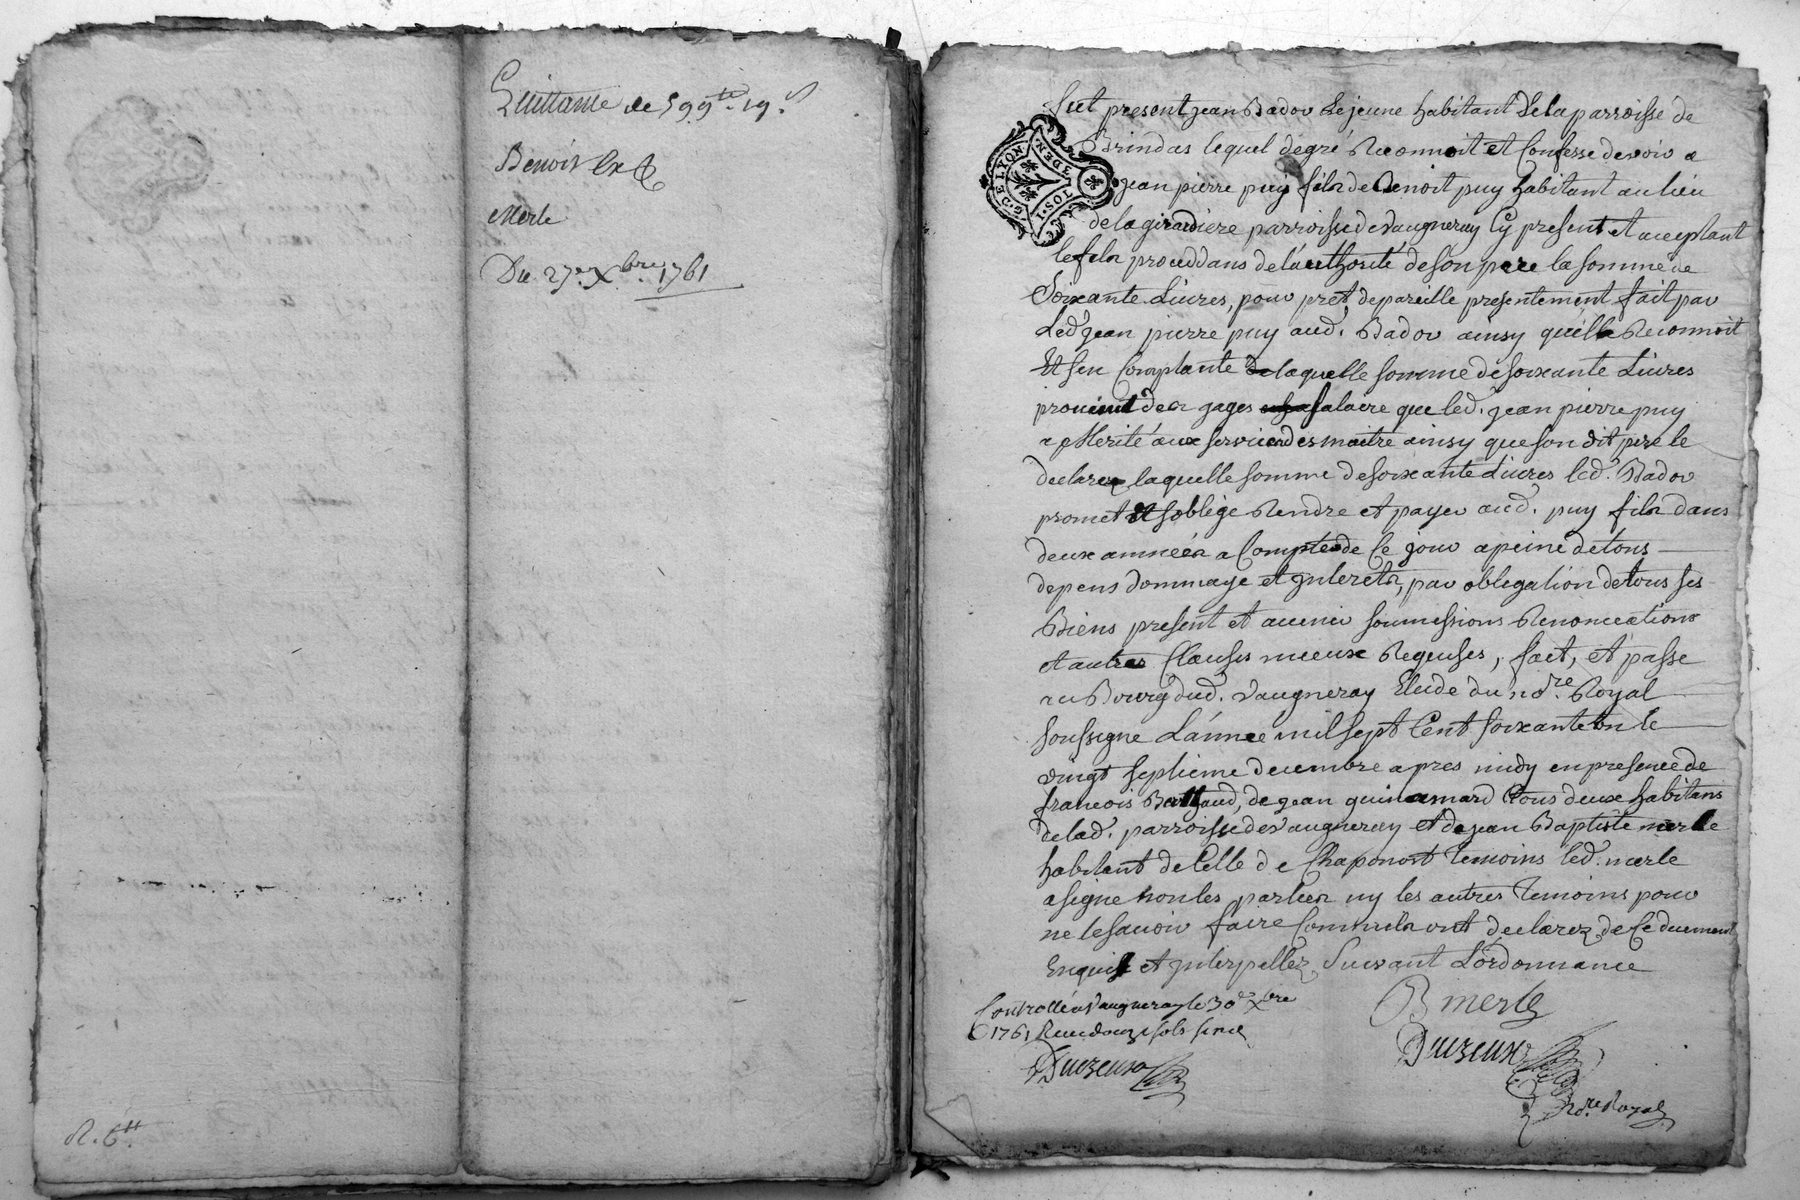 Quittance de 599tt. 19.s
Benoist
Merle
Du 27e Xbre 1761
R. 6tt.
fut present jean Bador Lejeune habitant de la parroisse de
Brindas lequel de gré Reconnoit et Confesse devoir a
jean pierre puy fils de Benoit puy habitant au lieu
de la girardiere parroisse de Vaugneray Cy present et acceptant
le fils proceddans de l'authorité de son pere la somme de
Soixante Livres, pour pret de pareille presentement fait par
Led. jean pierre puy aud. Badov ainsy qu'il le Reconnoit
Et sen Comptante laquelle somme de soixante Livres
provient des gages salaire que led. jean pierre puy
a Merité aux services des maitre ainsy que son dit pere le
declare laquelle somme de soixante Livres led. Badov
promet Et soblige Rendre et payer aud. puy fils dans
deux années a Compter de Ce jour a peine de tous
depens dommage et jnterets, par obligation de tous ses
Biens present et avenir soumissions Renonciations
et autres Clauses mieux Requises, fait, et passe
au Bourg dud. Vaugneray Etude du nore. Royal
soussigne L'année mil sept Cent soixante un le
vingt septieme decembre apres midy en presence de
francois Berthaud, de jean guinamard tous deux habitans
de lad. parroisse de Vaugneray et de jean Baptiste merle
habitant de Celle de Chaponost temoins led. merle
a signe non les parties ny les autres temoins pour
ne le savoir faire Comme ils ont declarez de Ce duement
Enquis et jnterpellez Suivant L'ordonnance
G. DE LYON
DEN.
I. SOL
Controllé a Vaugneray le 30e Xbre
1761 Recu douze sols six d
B merle
Duizeux
Duizeux
nore. Royal